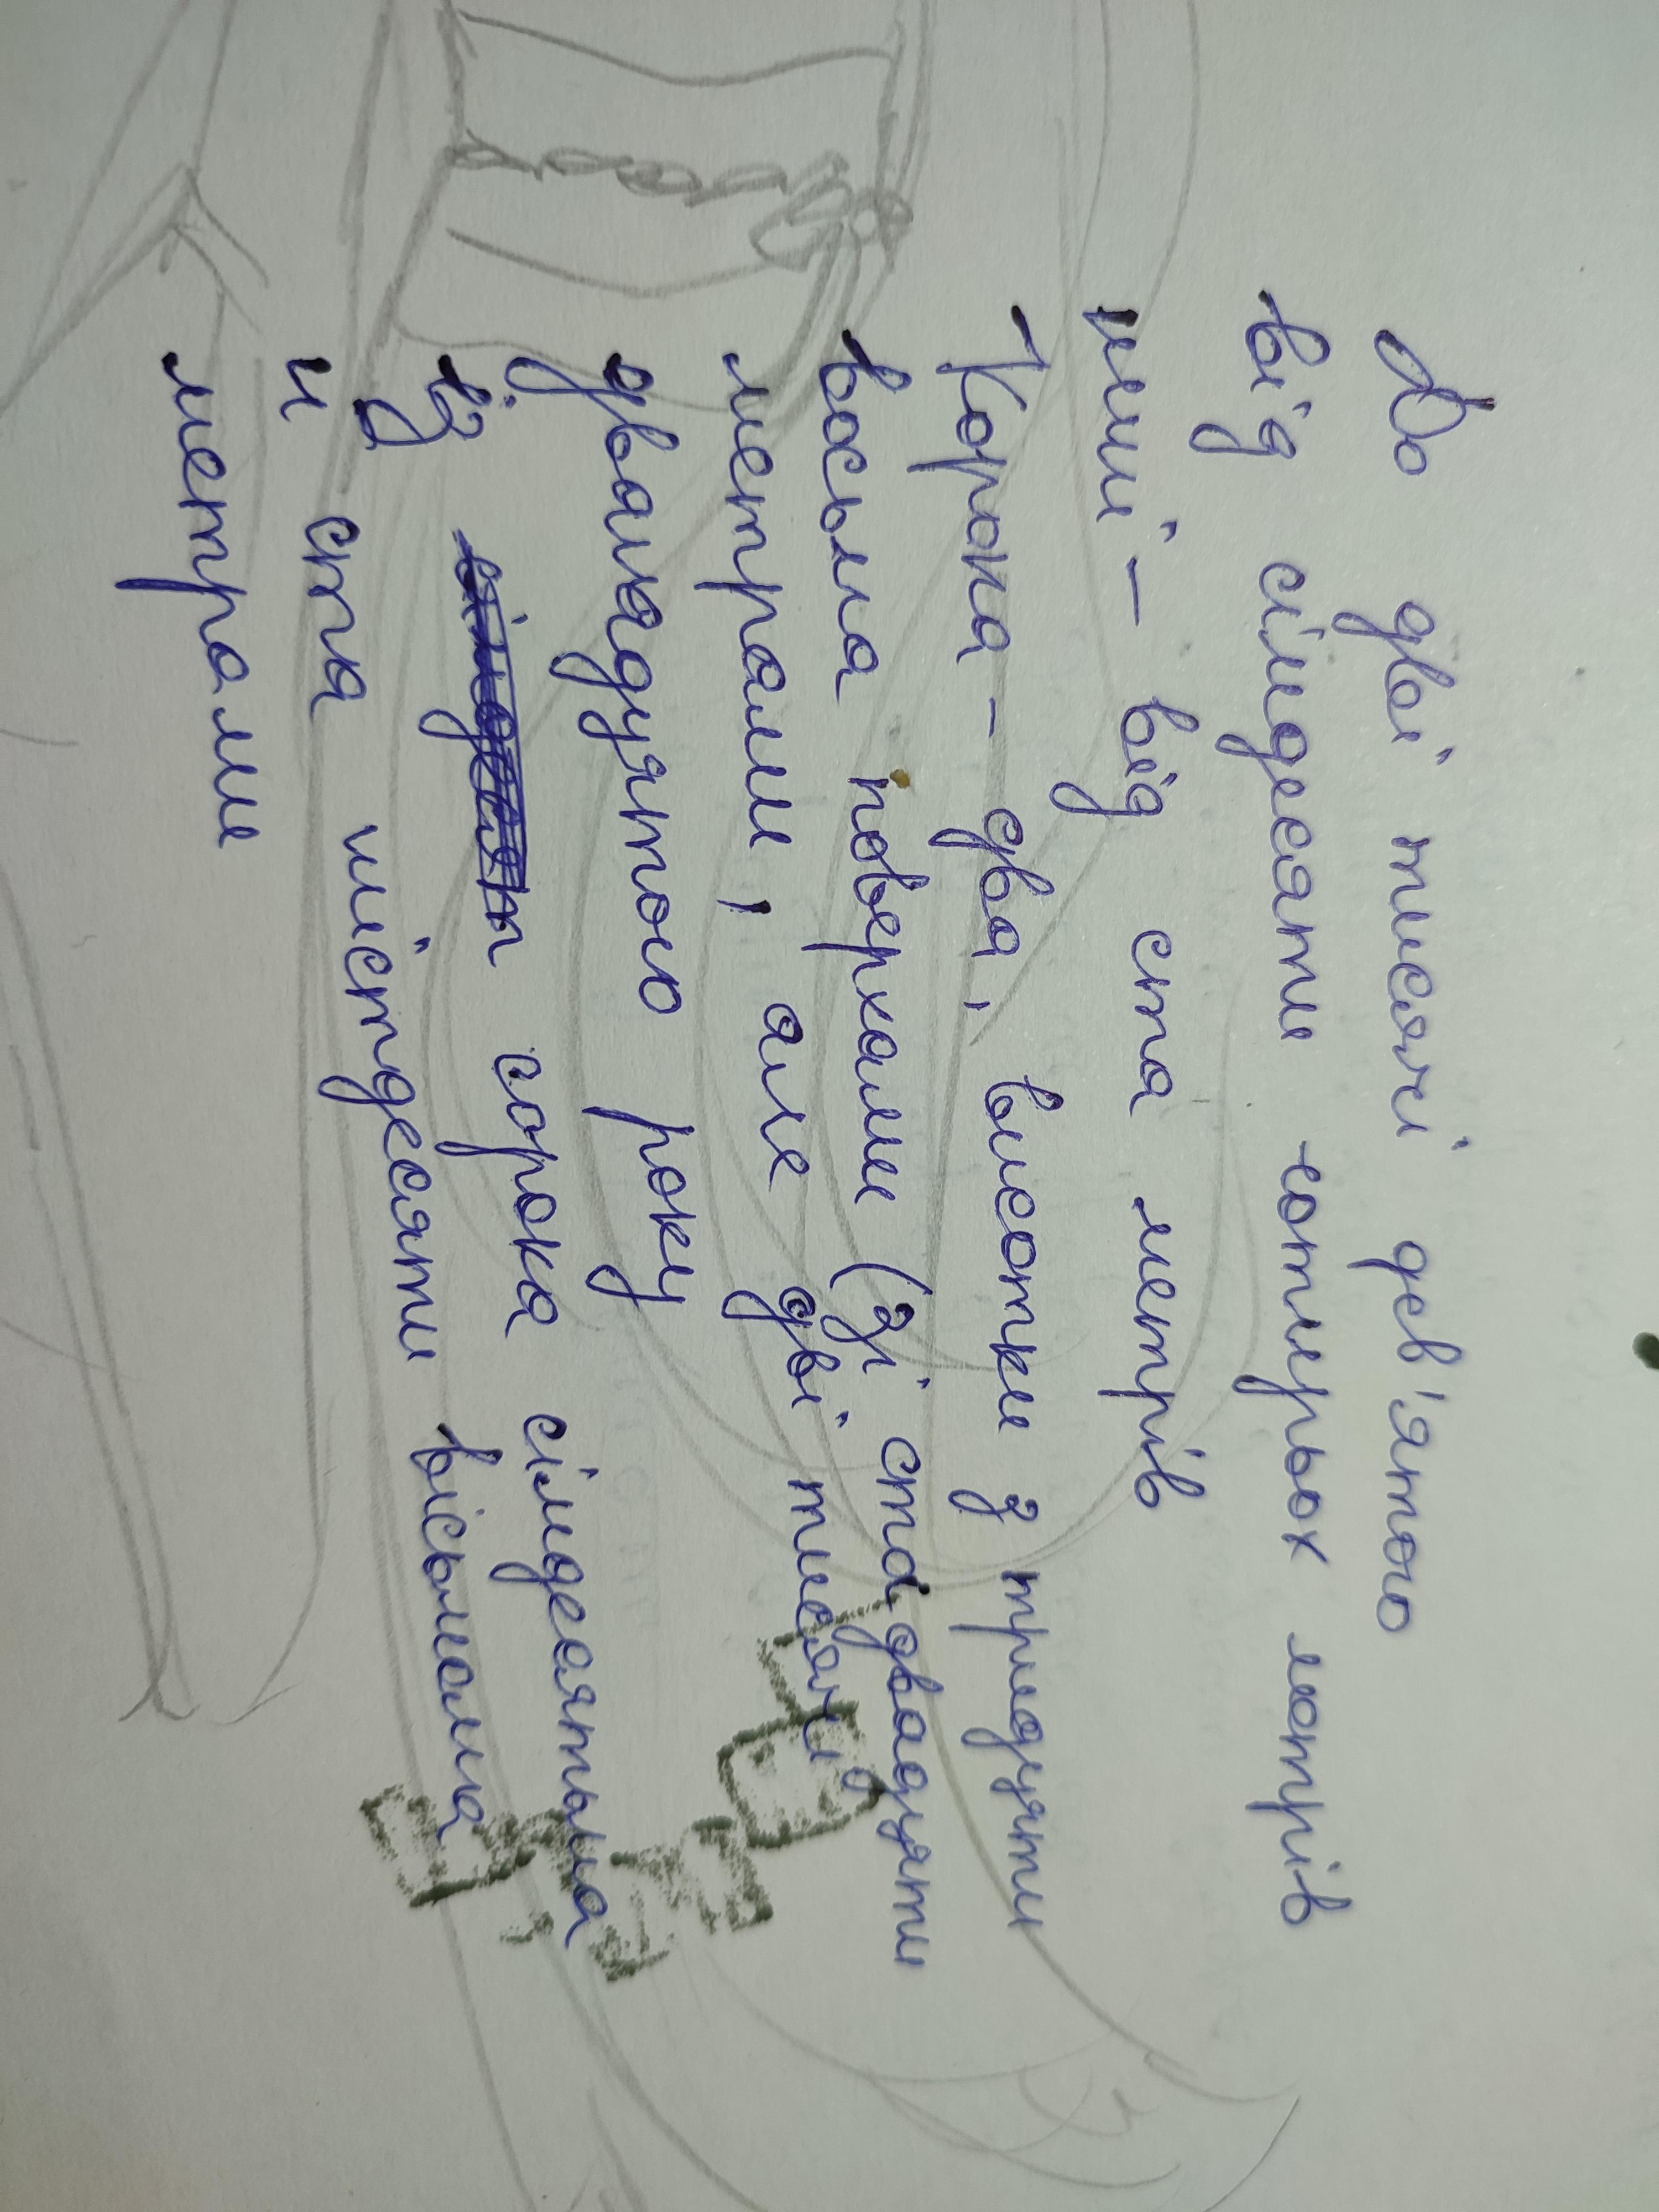 До дві тисячі дев'ятого
від сімдесяти чотирьох метрів
нині – від ста метрів
Корона – два, висотки з тридцяти
восьма поверхами (зі ста двадцяти
метрами, але дві тисячі
дванадцятого року
із сорока сімдесятьма
и ста шістдесяти вісьмома
метрами